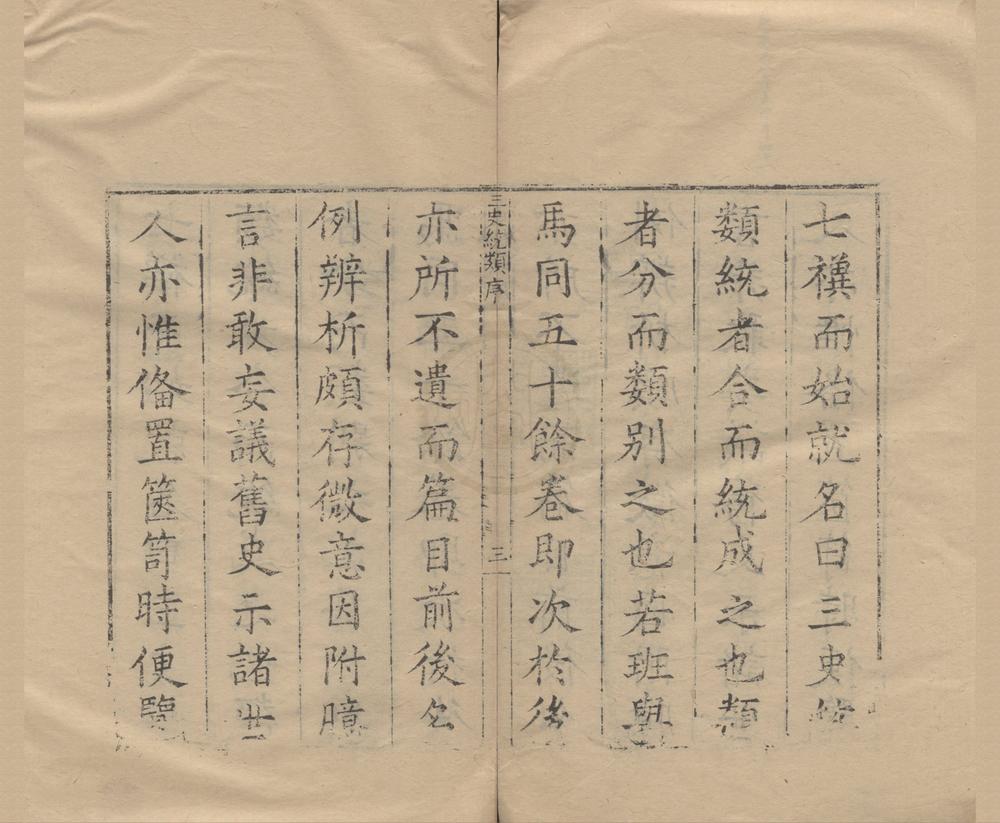 七禩而始就名曰三史統
類統者合而統成之也類
者分而類别之也若班與
馬同五十餘卷即次於後
三史統類序
三
亦所不遺而篇目前後
例辨析頗存微意因附臆
言非敢妄議舊史示諸世
人亦惟俻置篋笥時便覽